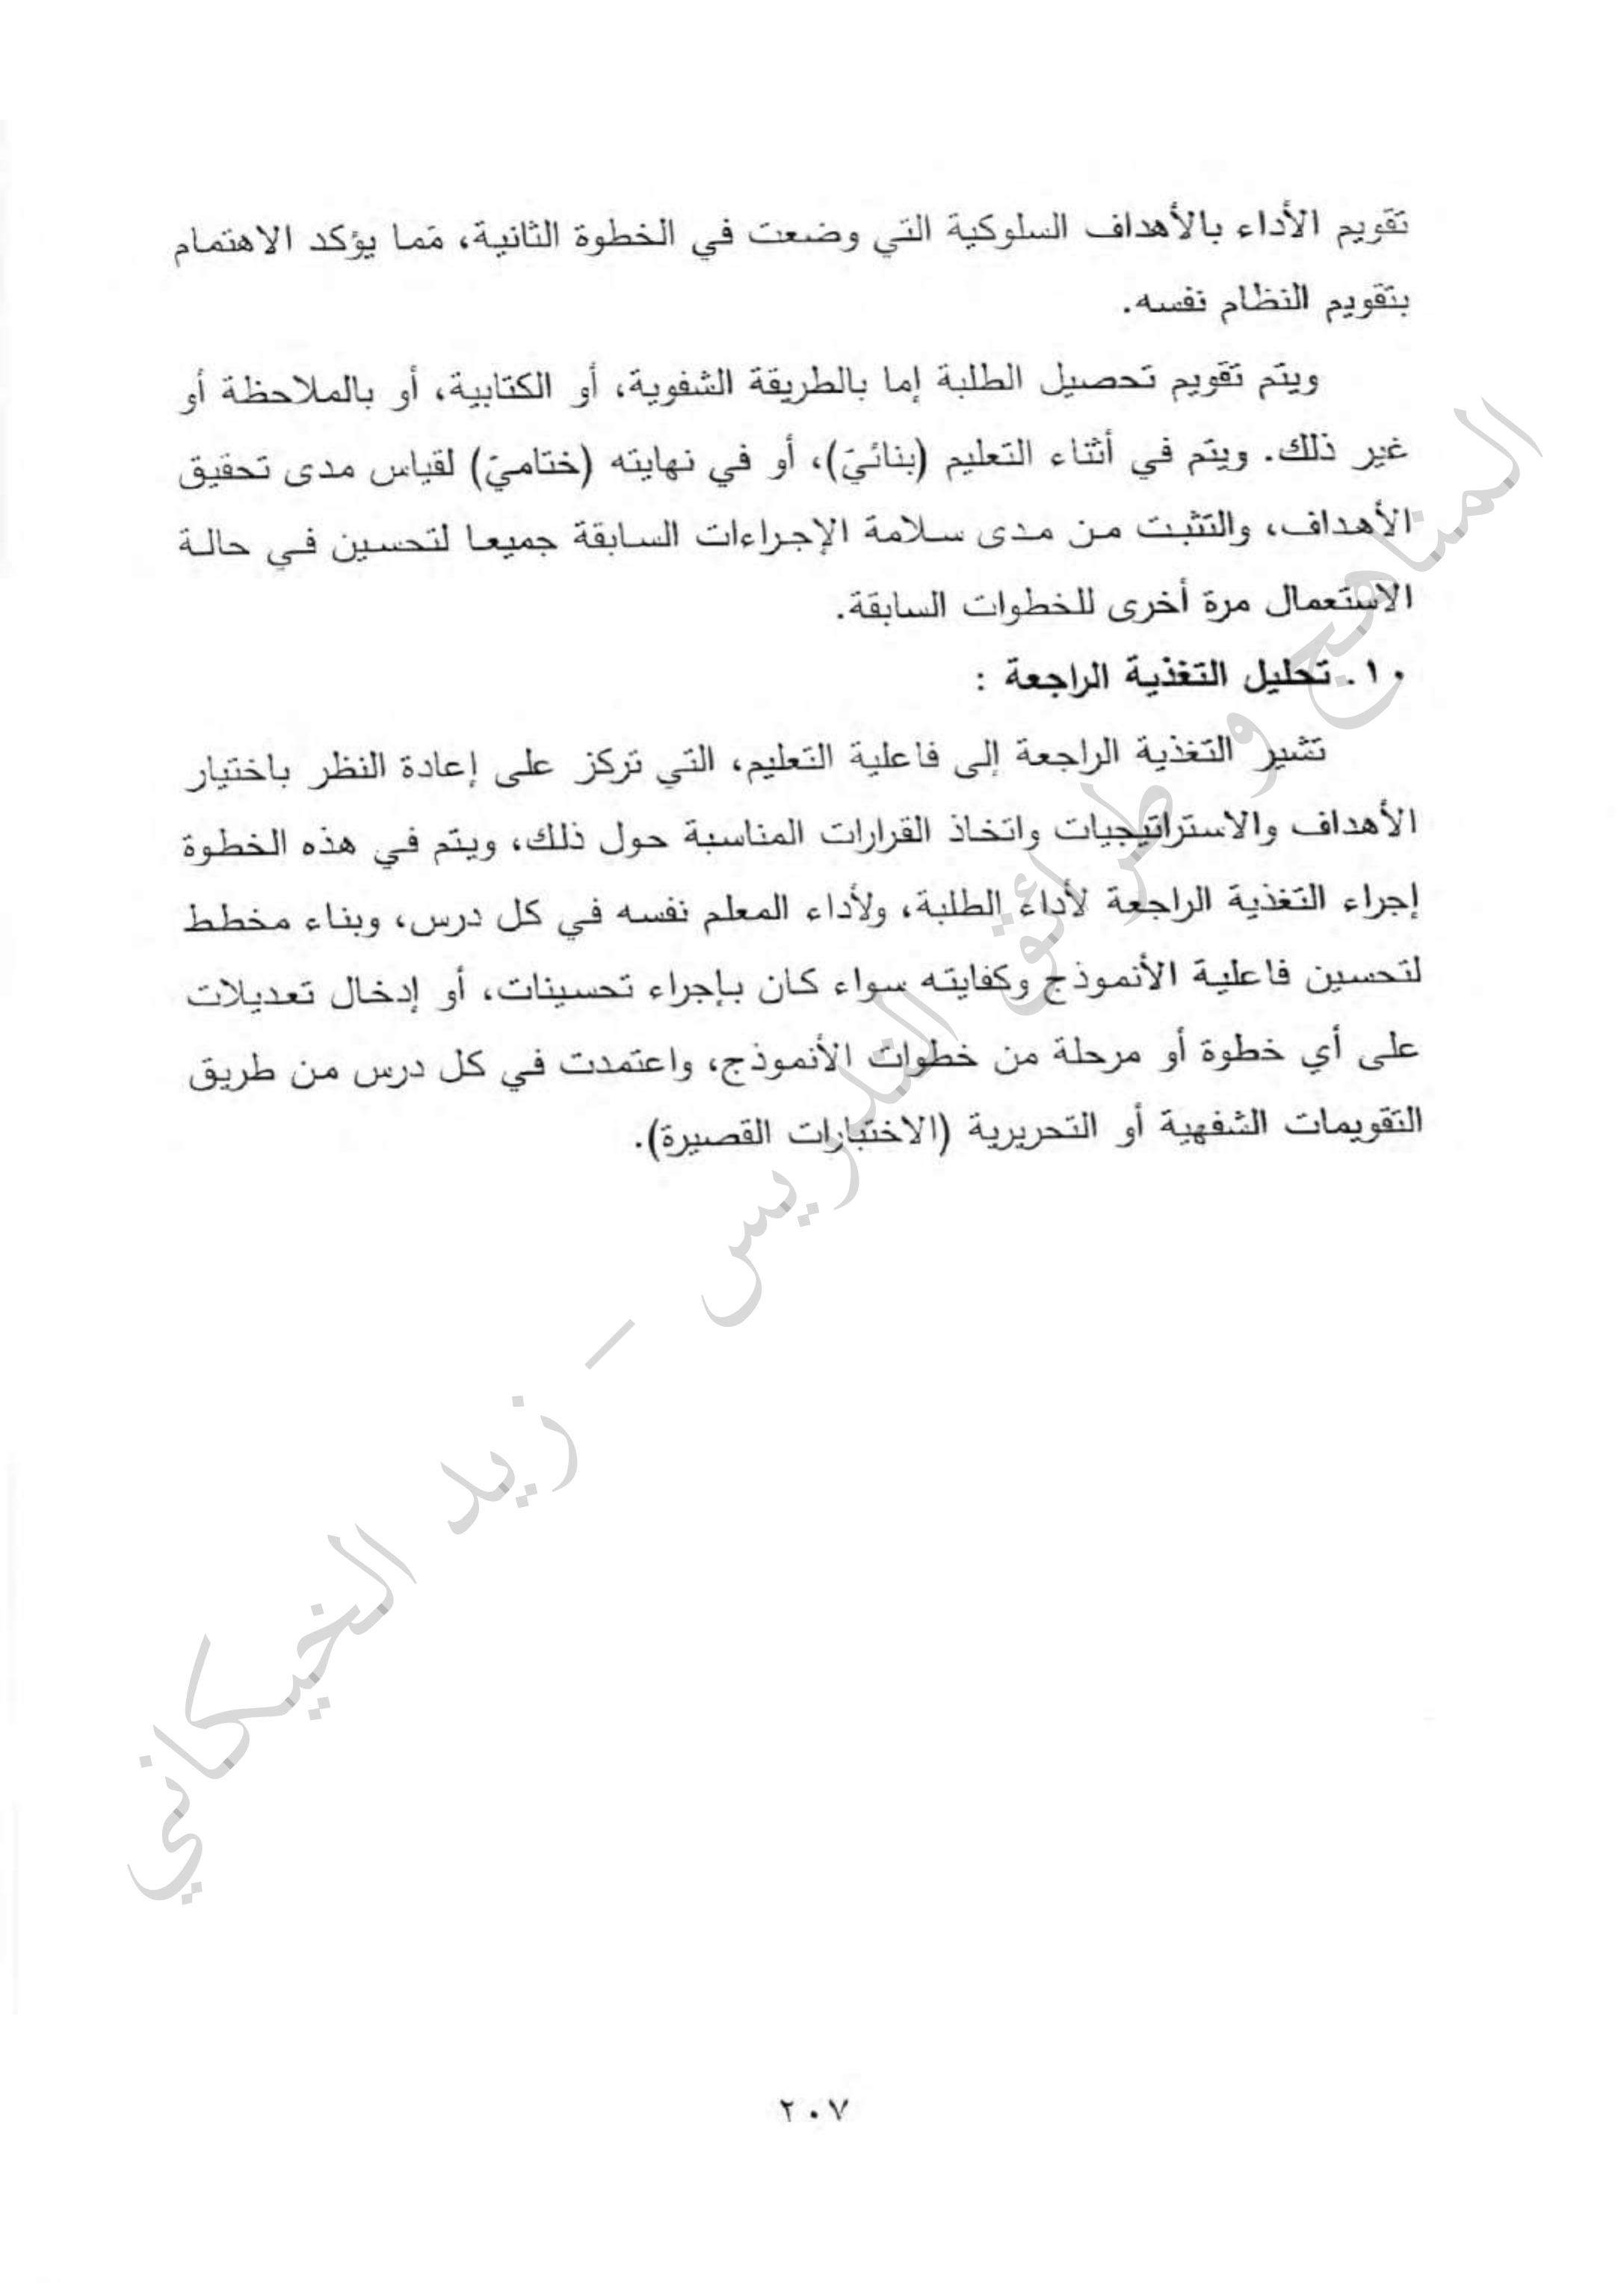 تقويم الأداء بالأهداف السلوكية التي وضعت في الخطوة الثانية، مَما يؤكد الاهتمام
بتقويم النظام نفسه.
ويتم تقويم تحصيل الطلبة إما بالطريقة الشفوية، أو الكتابية، أو بالملاحظة أو
غير ذلك. ويتم في أثناء التعليم (بنائيَ)، أو في نهايته (ختاميَ) لقياس مدى تحقيق
الأهداف، والتثبت من مدى سلامة الإجراءات السابقة جميعا لتحسين في حالة
الاستعمال مرة أخرى للخطوات السابقة.
١٠. تحليل التغذية الراجعة :
تشير التغذية الراجعة إلى فاعلية التعليم، التي تركز على إعادة النظر باختيار
الأهداف والاستراتيجيات واتخاذ القرارات المناسبة حول ذلك، ويتم في هذه الخطوة
إجراء التغذية الراجعة لأداء الطلبة، ولأداء المعلم نفسه في كل درس، وبناء مخطط
لتحسين فاعلية الأنموذج وكفايته سواء كان بإجراء تحسينات، أو إدخال تعديلات
على أي خطوة أو مرحلة من خطوات الأنموذج، واعتمدت في كل درس من طريق
التقويمات الشفهية أو التحريرية (الاختبارات القصيرة).
المناهج وطرائق التدريس – زيد الخيكاني
٢٠٧